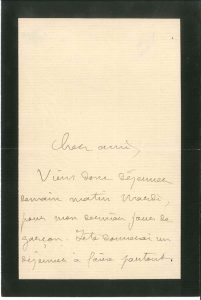 Cher ami,
Viens donc déjeuner
demain matin mardi,
pour mon dernier jour de
garçon. Je te donnerai un
déjeuner à faire